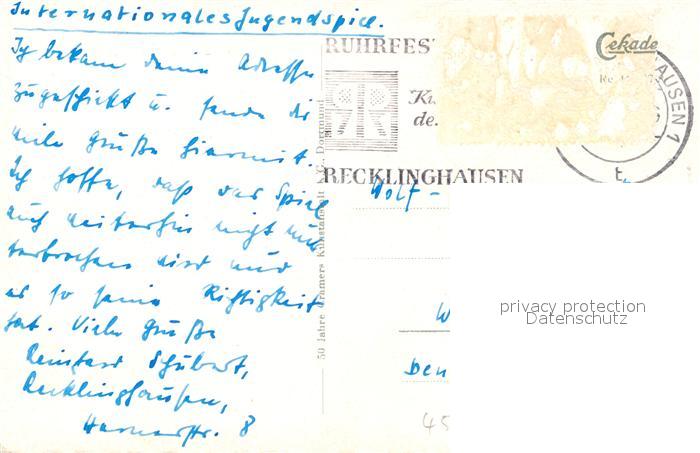 Internationales Jugendspiel.
Ich bekam deine Adresse
zugeschickt u. sende dir
viele Grüße hiermit.
Ich hoffe, daß das Spiel
auch weiterhin nicht un-
terbrochen wird und
es so seine Richtigkeit
hat. Viele Grüße
Reinhard Schubert,
Recklinghausen,
str. 8
50 Jahre Cramers Kunstanstalt KG., Dortmund
RUHRFES
Ku
de
RECKLINGHAUSEN
Cekade
HAUSEN 1
t
Wolf -
W
Den
45
privacy protection
Datenschutz